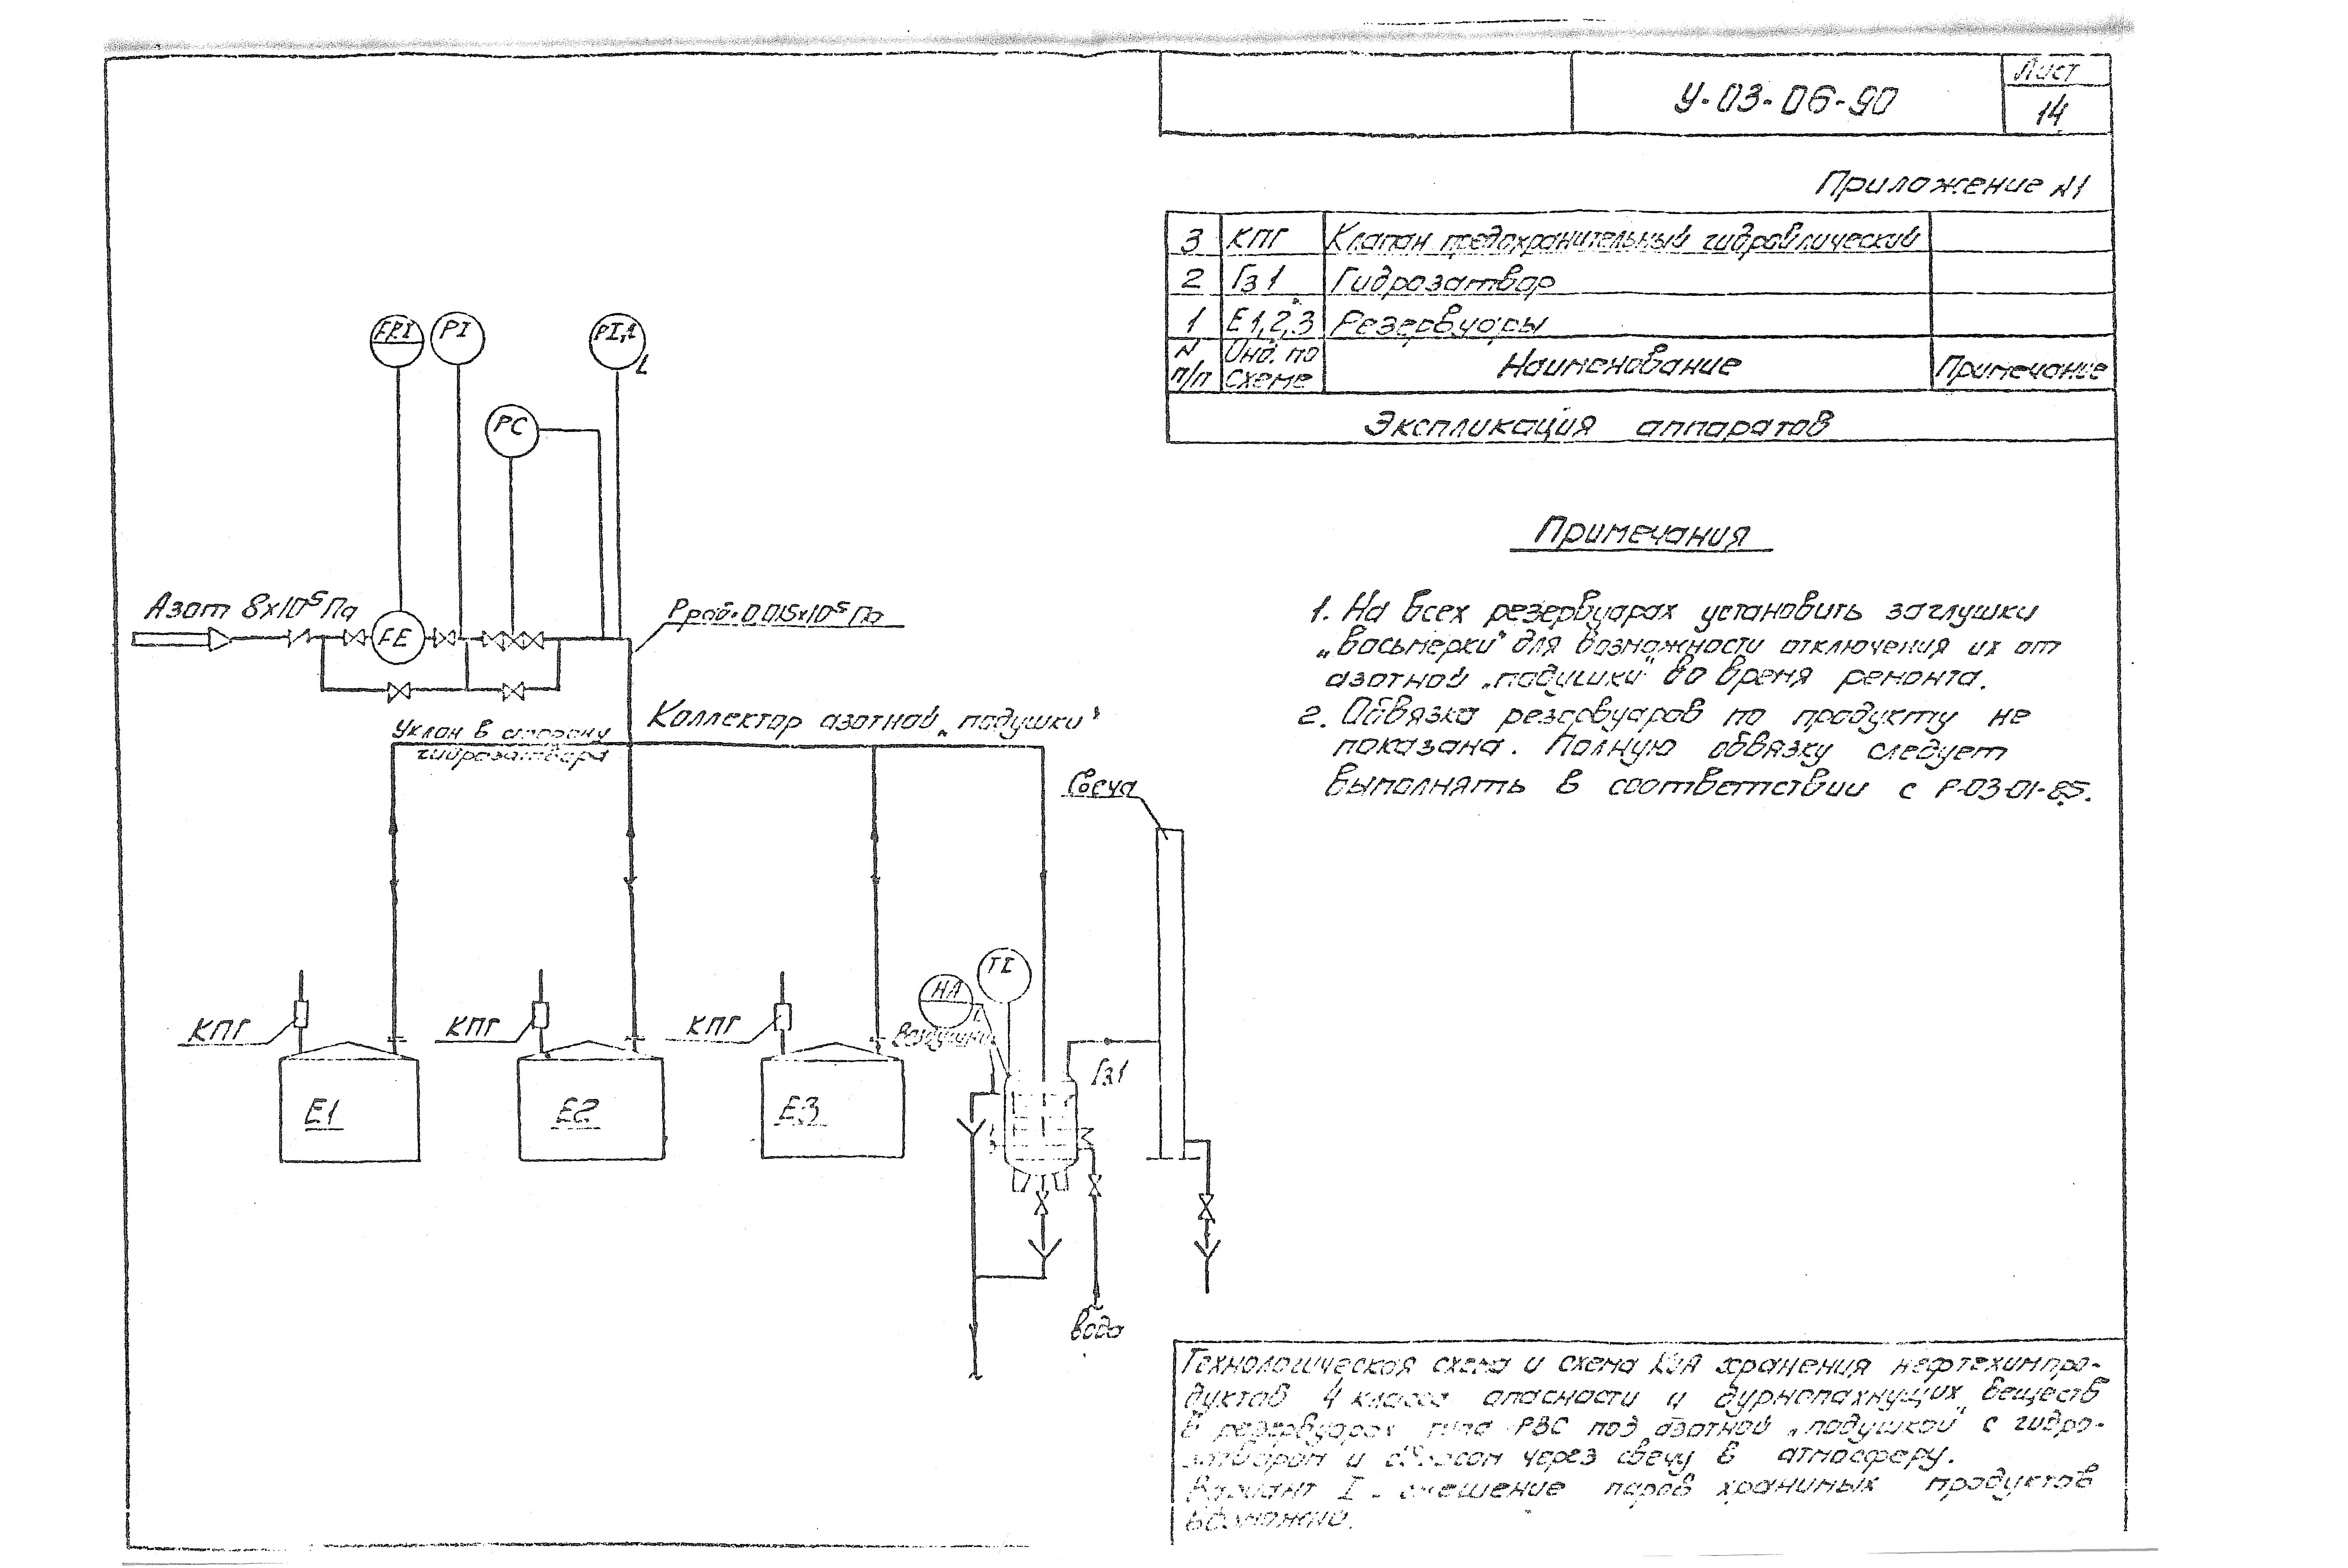 Лист
У-03-06-90
14
Приложение N1
3 КПГ Клапан предохранительный гидравлический
2 Гз1 Гидрозатвор
1 Е1,2,3 Резервуары
N п/п Инд. по схеме Наименование Примечание
Экспликация аппаратов
FPI PI PI,1
L
PC
Примечания
Азот 8х10⁵Па
FE
Рраб=0,015х10⁵Па
1. На всех резервуарах установить заглушки
„восьмерки" для возможности отключения их от
азотной „подушки" во время ремонта.
2. Обвязка резервуаров по продукту не
показана. Полную обвязку следует
выполнять в соответствии с Р-03-01-85.
Уклон в сторону
гидрозатвора
Коллектор азотной „подушки"
Свеча
TI
НА
КПГ КПГ КПГ
Воздушник
Гз1
Е1 Е2 Е3
Вода
Технологическая схема и схема КиА хранения нефтехимпро-
дуктов 4 класса опасности и дурнопахнущих веществ
в резервуарах типа РВС под азотной „подушкой" с гидро-
затвором и сбросом через свечу в атмосферу.
Вариант I - смешение паров хранимых продуктов
возможно.